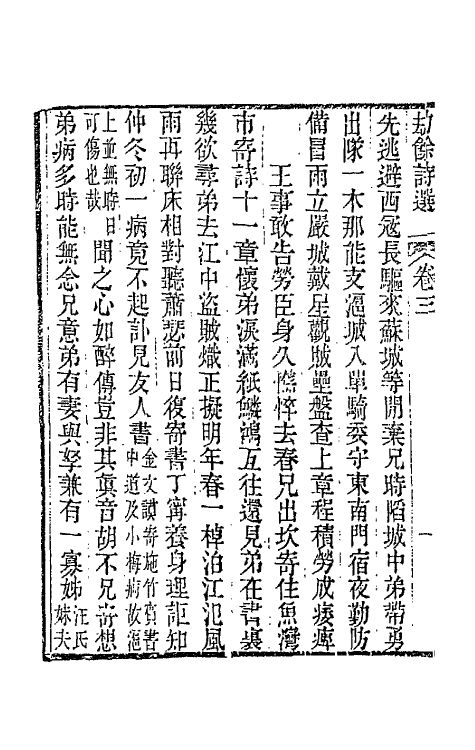 劫餘詩選 卷三
先逃避西冦長驅來蘇城等開棄兄時陷城中弟帶勇
出隊一木那能支滬城入單騎委守東南門宿夜勤防
備冒雨立嚴城戴星觀賊壘盤查上章程積勞成痿痺
王事敢告勞臣身久憔悴去春兄出坎寄住魚灣
市寄詩十一章懷弟淚滿紙鱗鴻互往還見弟在書裏
幾欲尋弟去江中盜賊熾正擬明年春一棹泊江汜風
雨再聯床相對聽蕭瑟前日復寄書丁寧養身理詎知
仲冬初一病竟不起訃見友人書金文讃寄施竹賓書中道及小梅病故滬
上並無時日可傷也哉聞之心如醉傳豈非其眞音胡不兄寄想
弟病多時能無念兄意弟有妻與孥兼有一寡姊汪氏妹夫